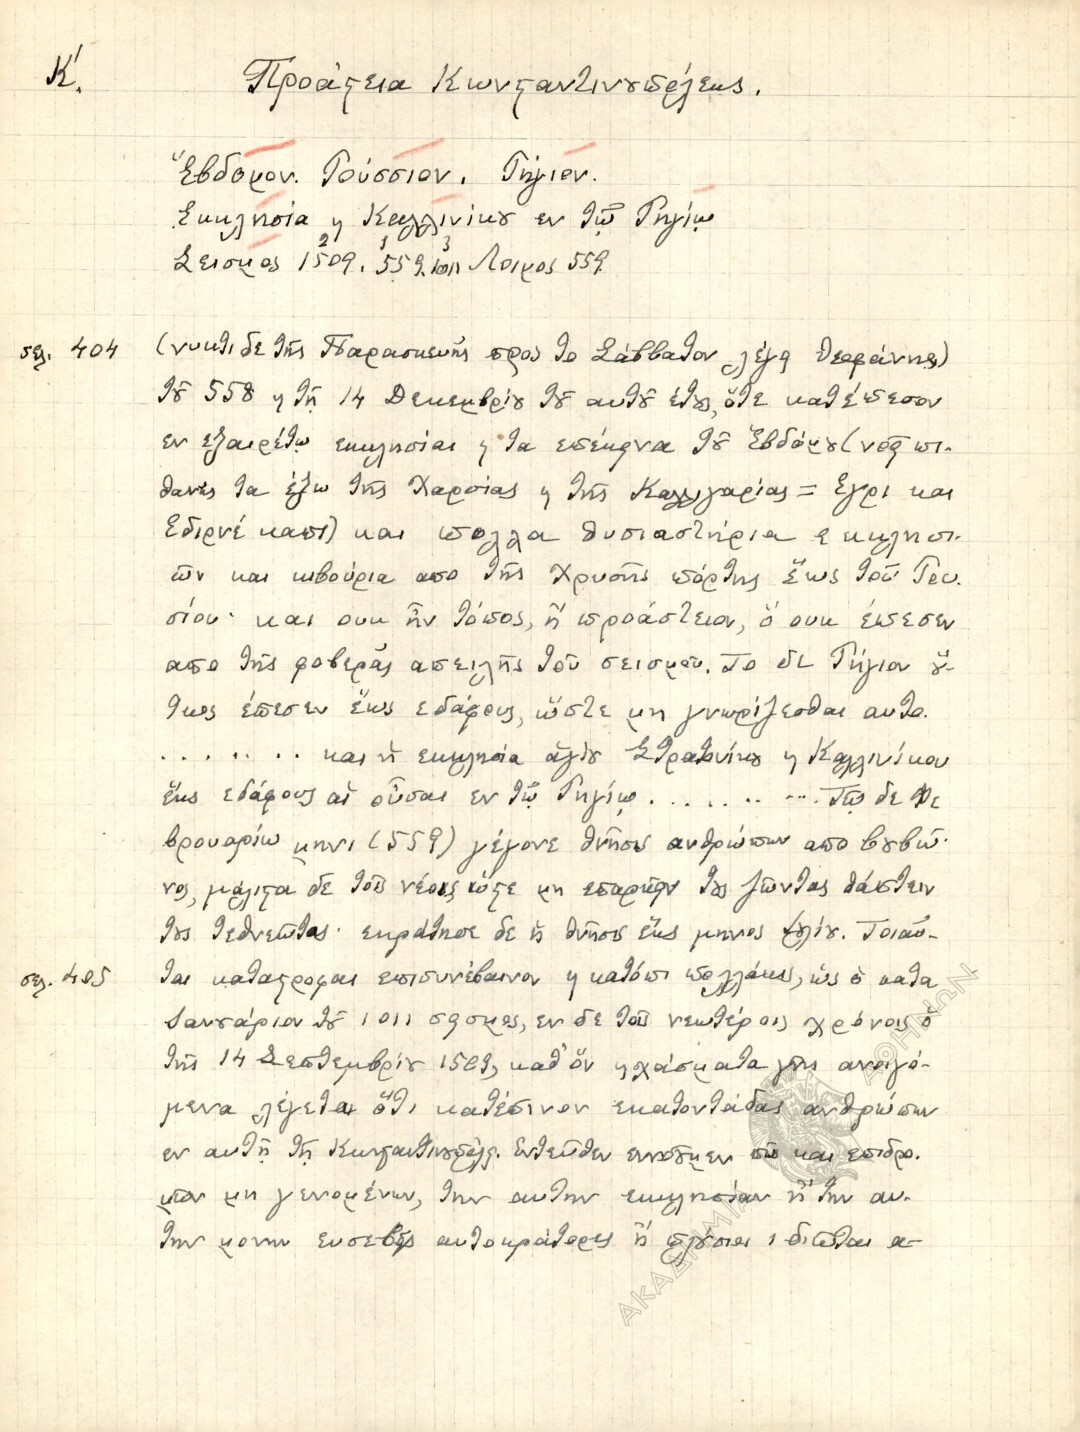 Κ'.
Προάστεια Κωνσταντινουπόλεως.
Ἕβδομον. Ρούσσιον. Ρήγιον.
Εκκλησία Καλλινίκου εν τῷ Ρηγίῳ
2 1 3
Σεισμος 1509. 559. 1011 Λοιμος 559
σελ. 404 (νυκτι δε τῆς Παρασκευῆς προς το Σάββατον λέγει Θεοφάνης)
τοῦ 558 τῇ 14 Δεκεμβρίου τοῦ αυτοῦ έτους, ὅτε κατέπεσον
εν εξαιρέτῳ εκκλησίαι τα επέκεινα τοῦ Ἑβδόμου (νῦν πι-
θανῶς τα έξω τῆς Χαρσίας τῆς Καλλιγαρίας = Εγρι και
Εδιρνέ καπι) και πολλα θυσιαστήρια εκκλησι-
ῶν και κιβούρια απο τῆς Χρυσῆς πόρτης ἕως τοῦ Ρου-
σίου· και ουκ ἦν τόπος, ἢ προάστειον, ὁ ουκ έπεσεν
απο τῆς φοβερᾶς απειλῆς τοῦ σεισμοῦ. Το δε Ρήγιον οὕ-
τως έπεσεν ἕως εδάφους, ὥστε μη γνωρίζεσθαι αυτο.
. . . . . . . και ἡ εκκλησία ἁγίου Στρατονίκου Καλλινίκου
ἕως εδάφους αἱ οὖσαι εν τῷ Ρηγίῳ . . . . . . . . . Τῷ δε Φε
βρουαρίω μηνι (559) γέγονε θνῆσις ανθρώπων απο βουβῶ-
νος, μάλιστα δε τοῖς νέοις ώστε μη επαρκεῖν τους ζῶντας θάπτειν
τους τεθνεῶτας· εκράτησε δε ἡ θνῆσις ἕως μηνος Ιουλίου. Τοιαῦ-
σελ. 405 ται καταστροφαι επισυνέβαινον κατόπι πολλάκις, ὡς ὁ κατα
Ιανουάριον τοῦ 1011 σεισμος, εν δε τοῖς νεωτέροις χρόνοις ὁ
τῆς 14 Σεπτεμβρίου 1509, καθ' ὅν χάσματα γῆς ανοιγό-
μενα λέγεται ὅτι κατέπινον εκατοντάδας ανθρώπων
εν αυτῇ τῇ Κωνσταντινουπόλει. Εντεῦθεν εννοοῦμεν πῶς και επιδρο-
μῶν μη γενομένων, την αυτην εκκλησίαν ἢ την αυ-
την μονην ευσεβεῖς αυτοκράτορες ἢ πλούσιοι ιδιῶται α-
ΑΚΑΔΗΜΙΑ ΑΘΗΝΩΝ